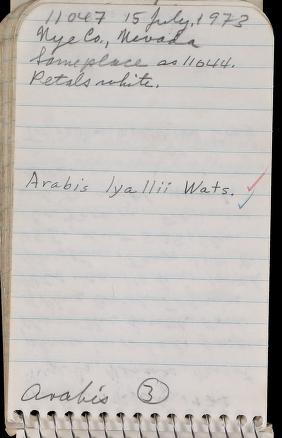 11047 15 July, 1973
Nye Co., Nevada
Same place as 11044.
Petals white.
Arabis lyallii Wats.
Arabis 3